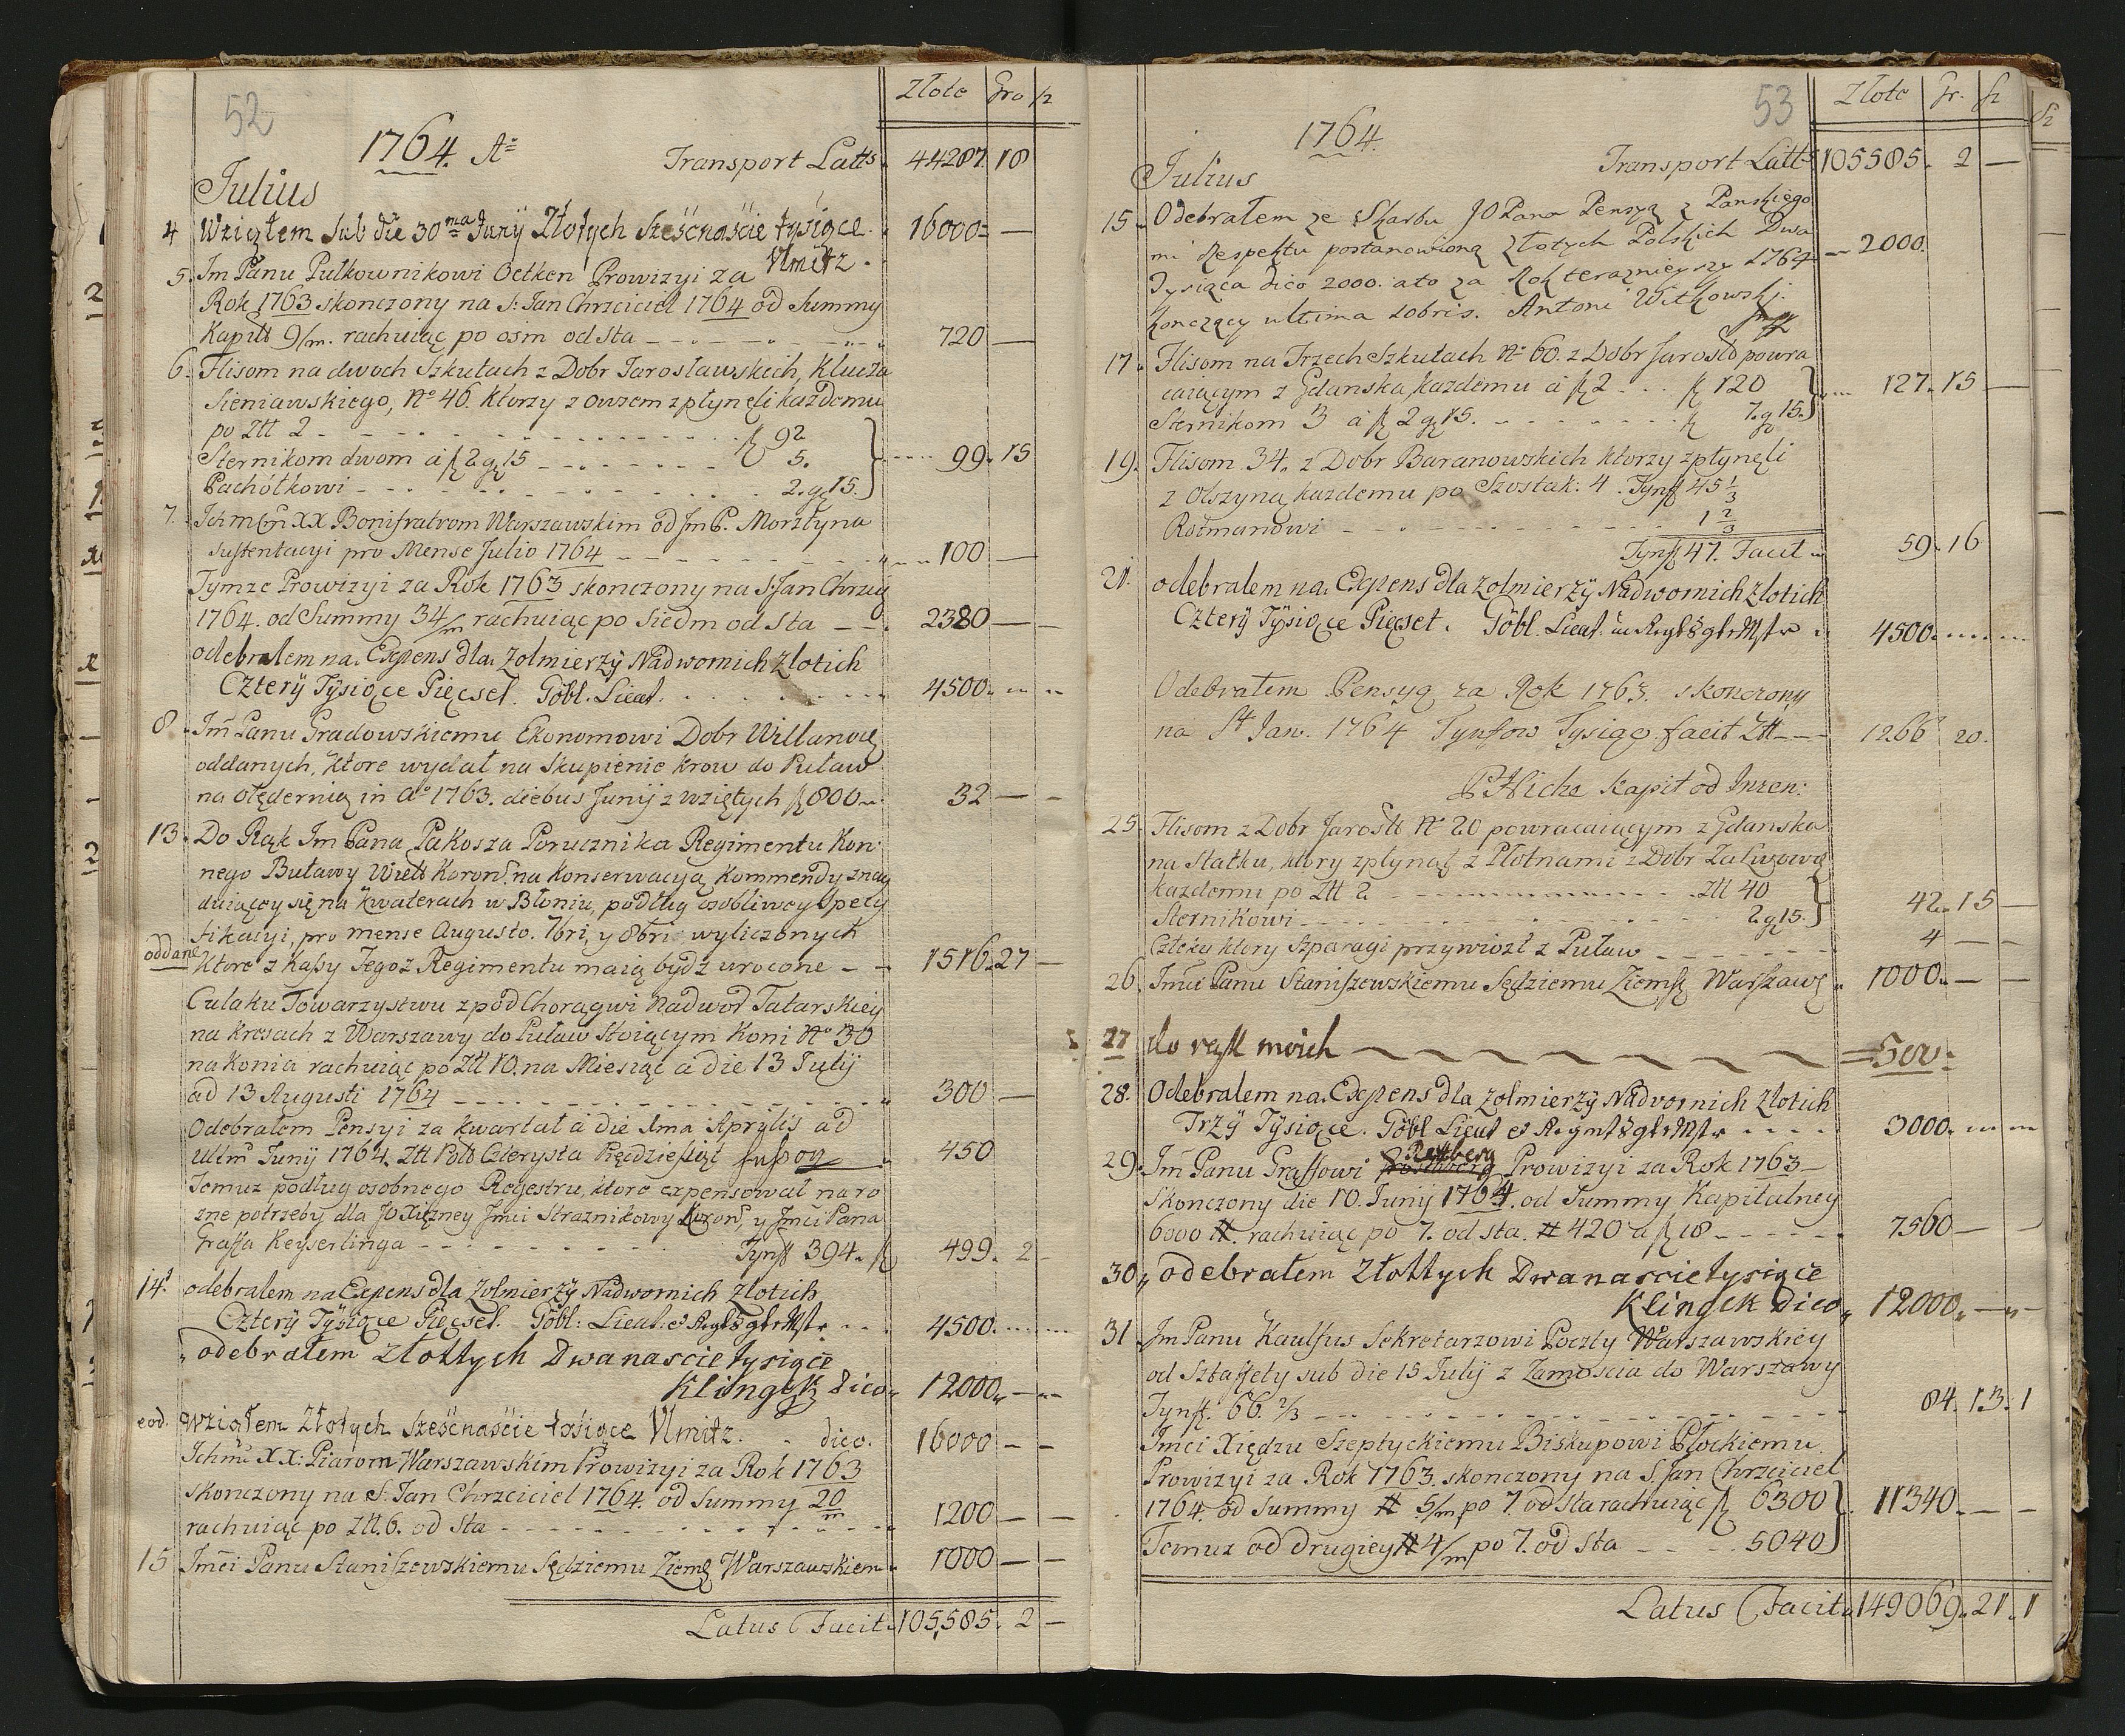 52
Złote Gro sz
1764. Ao Transport Latts. 44287. 18
Julius
4 Wziąłem Sub die 30ma Junÿ Złotych Sześcnaście tysiące. 16000 —
Vlmitz.
5. Im Panu Pułkownikowi Oetken Prowizyi za
Rok 1763 skonczony na S: Jan Chrzciciel 1764 od Summy
Kapitt 9/m. rachuiąc po osm od sta — 720 —
6. Flisom na dwoch Szkutach z Dobr Jarosławskich, Klucza
Sieniawskiego, No 46. Ktorzy z owsem zpłynęli każdemu
po Ztt 2 - - - fl 92
Sternikom dwom a fl 2 g 15 - - - 5. 99. 15
Pachółkowi - - - 2. g 15.
7. Ichmcm XX Bonifratrom Warszawskim od Im P. Morsztyna
sustentacyi pro Mense Julio 1764 — 100 —
Tymze Prowizyi za Rok 1763 skonczony na S Jan Chrzcy
1764. od Summy 34/m rachuiąc po siedm od sta — 2380 —
odebralem na Expens dla Zolmierzÿ Nadwornich Zlotich
Czterÿ Tÿsiące Pięcset. Göbl. Lieut. 4500.
8. Im Panu Gradowskiemu Ekonomowi Dobr Willanow
oddanych, ktore wydał na skupienie krow do Puław
na olędernią in Ao 1763. diebus Junij z wziętych fl 800. 32 —
13. Do Rąk Im Pana Pakosza Porucznika Regimentu Kon
nego Buławy Wielk Koron. na konserwacyą Kommendy znay
duiącey się na kwaterach w Błoniu, podług osobliwey Specy
fikacyi, pro mense Augusto. 7bri, y 8bri wyliczonych
oddane ktore z kassy Tegoz Regimentu maią bydź wrocone — 1516. 27 —
Culaku Towarzystwu zpod Chorągwi Nadwor Tatarskiey
na kresach z Warszawy do Puław stoiącym koni No 30
na konia rachuiąc po Ztt 10. na Miesiąc a die 13 Julij
ad 13 Augusti 1764 — 300 —
Odebrałem Pensyi za kwartał a die 1ma Aprylis ad
ultm Junij 1764. Ztt Pols Czterysta Pięćdziesiąt 450
Temuz podług osobnego Regestru, ktore expensował na ro
zne potrzeby dla JO Xiężney Imci Straznikowy Koron, y Imci Pana
Graffa Keyserlinga - - - Tynff 394. fl 499. 2 -
14. odebralem na Expens dla Zolmierzÿ Nadwornich Zlotich
Czterÿ Tÿsiące Pięcset. Göbl: Lieut: 4500.
odebrałem złottych Dwanascie tysiące
Klingek Dico. 12000. —
eod. wziąłem Złotych Sześcnaście tysiące Vlmitz. dico. 16000 — —
Ichmc XX: Piarom Warszawskim Prowizyi za Rok 1763
skonczony na S: Jan Chrzciciel 1764. od Summy 20/m
rachuiąc po Ztt. 6. od sta - - - 1200 — —
15 Imci Panu Staniszewskiemu Sędziemu Ziems Warszawskiem 1000 — —
Latus Facit. 105,585. 2 —
53
Złote Gr. sz
1764.
Transport Latts 105585. 2 —
Julius
15. Odebrałem ze Skarbu JO Pana Pensyą z Panskiego
mi Respektu postanowioną złotych Polskich Dwa
Tysiąca dico 2000. a to za Rok terazniejszy 1764 2000.
konczący ultima 10bris. Antoni Witkowski
17. Flisom na Trzech Szkutach No 60. z Dobr Jarosło powra
caiącym z Gdanska, każdemu a fl 2 . . fl 120 127. 15 —
Sternikom 3 a fl 2 g 15. - - - fl 7. g 15.
19. Flisom 34. z Dobr Baranowskich ktorzy zpłynęli
z olszyną kazdemu po Szostak: 4. Tynff 45 1/3
Rotmanowi - - - 1 2/3
Tynff 47. Facit 59. 16
21. odebralem na Expens dla Zolmierzÿ Nadwornich Zlotich
Czterÿ Tÿsiące Pięcset. Göbl. Lieut. 4500.
Odebrałem Pensyą za Rok 1763. skonczony
na St Jan. 1764 Tynfow Tysiąc facit Ztt — 1266 20.
Kapit od Inzen:
25. Flisom z Dobr Jarostt No 20 powracaiącym z Gdanska
na Statku, ktory zpłynął z Płotnami z Dobr
kazdemu po Ztt 2 - - - ztt 40
Sternikowi - - - 2. g 15. 42. 15 —
Człeku ktory Szparagi przywiozł z Puław - - - 4 — —
26. Imci Panu Staniszewskiemu Sędziemu Ziemsk Warszaws. 1000. — —
27 do rąk moich 500.
28. Odebralem na Expens dla Zolmierzÿ Nadvornich Zlotich
Trzÿ Tÿsiące. Göbl Lieut 3000.
29. Im Panu Graffowi Rettberg Prowizyi za Rok 1763
skonczony die 10. Junij 1764. od Summy Kapitalney
6000 #. rachuiąc po 7. od sta. # 420 a fl 18 - - - 7560 —
30. odebrałem złottych Dwanascie tysiące
Klingek dico. 12000. —
31 Im Panu Kaulfus Sekretarzowi Poczty Warszawskiey
od Sztaffety sub die 15 Julij z Zamoscia do Warszawy
Tynff. 66. 2/3 - - - 84. 13. 1
Imci Xiędzu Szeptyckiemu Biskupowi Płockiemu.
Prowizyi za Rok 1763. skonczony na S. Jan Chrzciciel
1764. od Summy # 5/m po 7. od sta rachuiąc fl 6300 11340. — —
Temuz od drugiey # 4/m po 7. od sta - - 5040
Latus Facit 149069. 21. 1